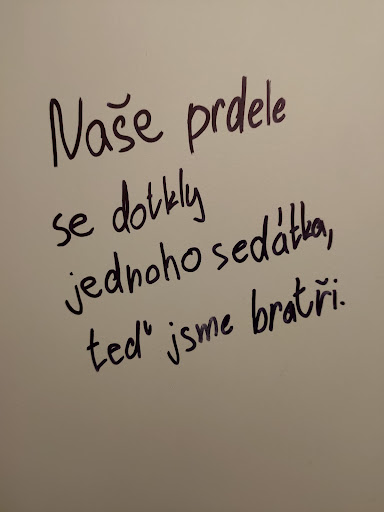 Naše prdele
se dotkly
jednoho sedátka,
teď jsme bratři.